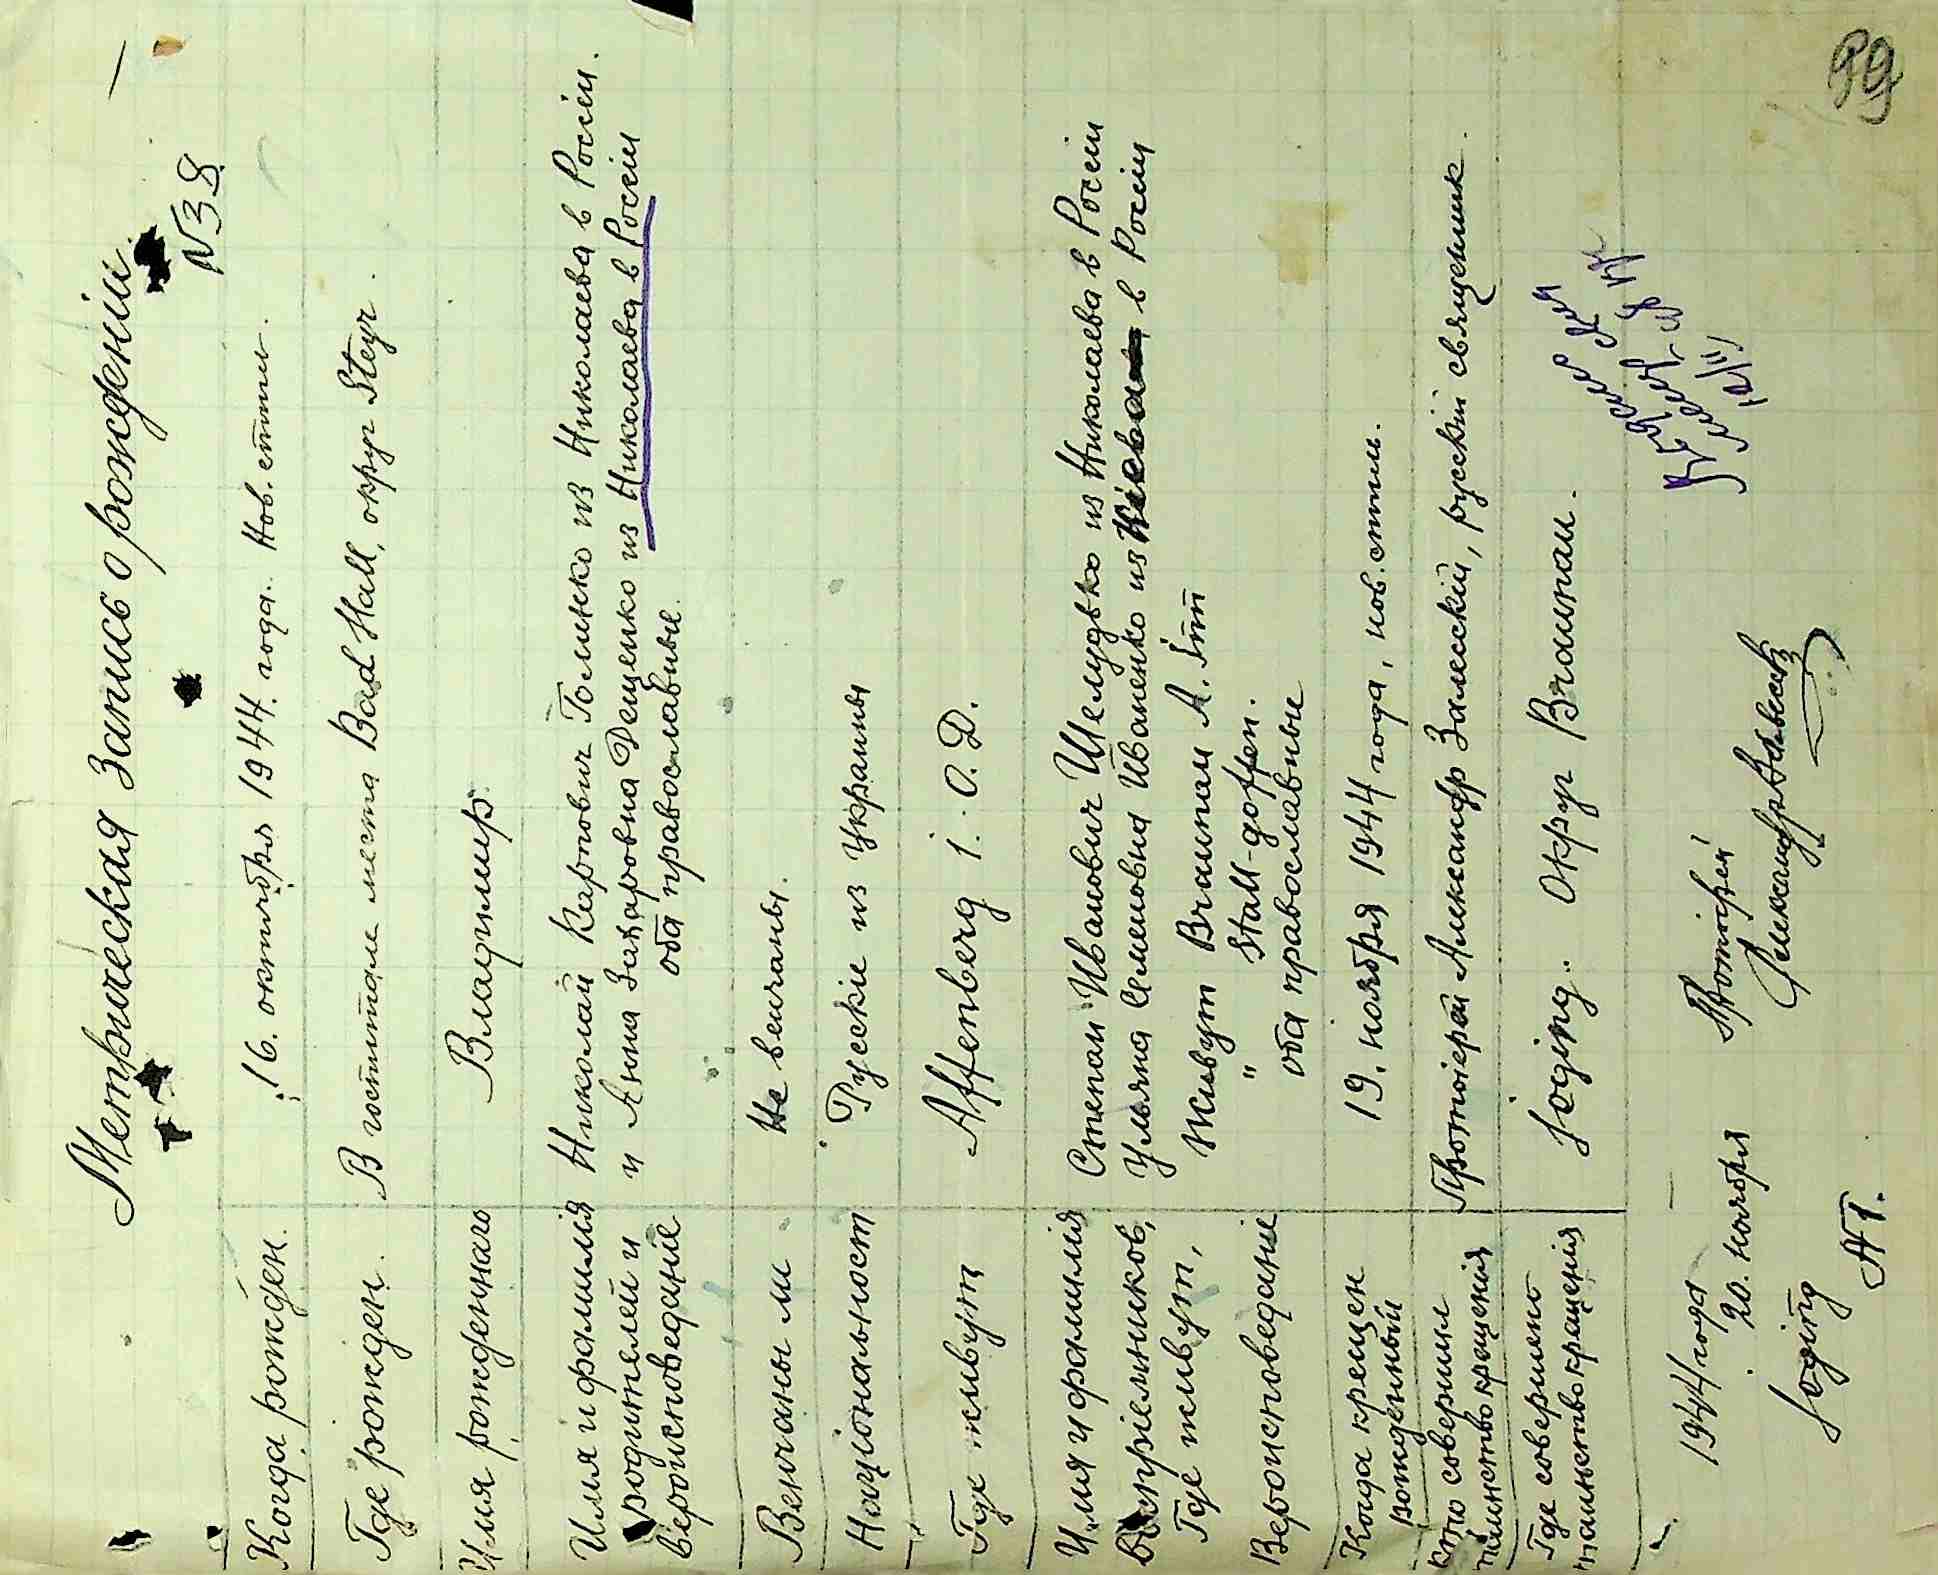 Метрическая запись о рожденіи.
№38
Когда рожден.
16. октября 1944. года. Нов. стил.
Где рожден.
В госпитале места Bad Hall, округ Steyr.
Имя рожденнаго
Владимир.
Имя и фамилія
родителей и
вероисповеданіе
Николай Карпович Голинко из Николаева в Россіи.
и Анна Захаровна Деценко из Николаева в Россіи
оба православные.
Венчаны ли
Не венчаны.
Національност
Русскіе из Украины
Где живут
Affenberg i. O.D.
Имя и фамилія
воспріемников,
Где живут,
Вероисповеданіе
Степан Иванович Шелудько из Николаева в Россіи
Ульяна Семеновна Иваненко из в Россіи
Живут Braunau A. Inn
" Stall-
оба православные
Когда крещен
рожденный
19. ноября 1944 года, нов. стил.
Кто совершил
таинство крещенія
Протоіерей Александр Залесскій, русскій священник.
Где совершено
таинство крещенія
Joging. Округ Braunau.
1944 года
20. ноября
Joging
№1.
Протоіерей
Александр Залесскій
99